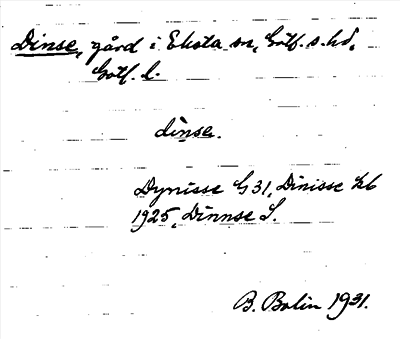 Dinse, gård i Eksta sn, Gotl. s. hd,
Gotl. l.
dinse.
Dynisse G 31, Dinisse kb
1925, Dinnse L.
B. Bolin 1931.